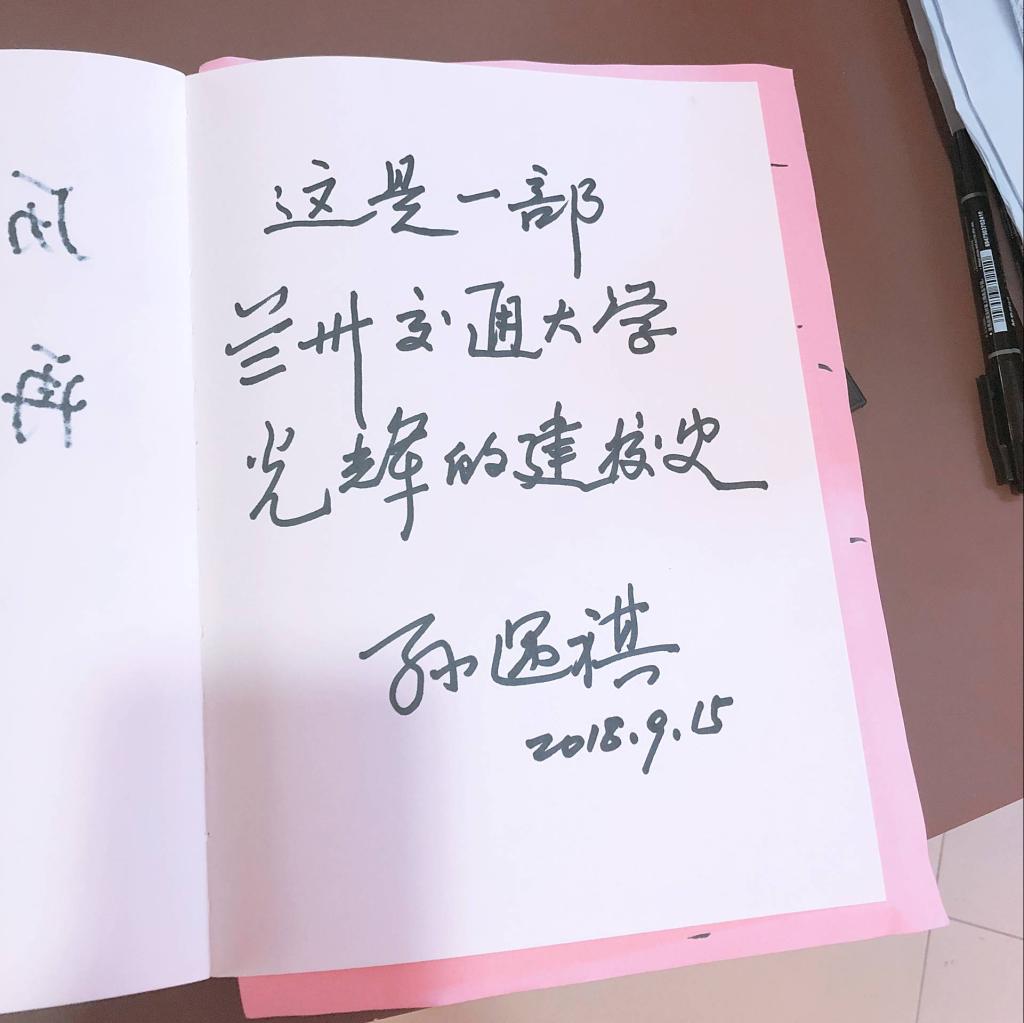 这是一部
兰州交通大学
光辉的建校史
孙遇祺
2018.9.15